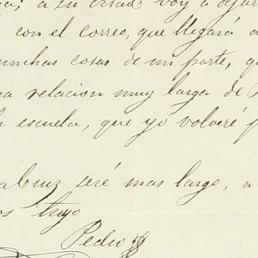 a su
voy a dejar
con el correo, que llegará a
muchas cosas de mi parte, qu
a relacion muy larga de
escuela, que yo volveré p
Cruz seré mas largo, a
os tuyo
Pedro